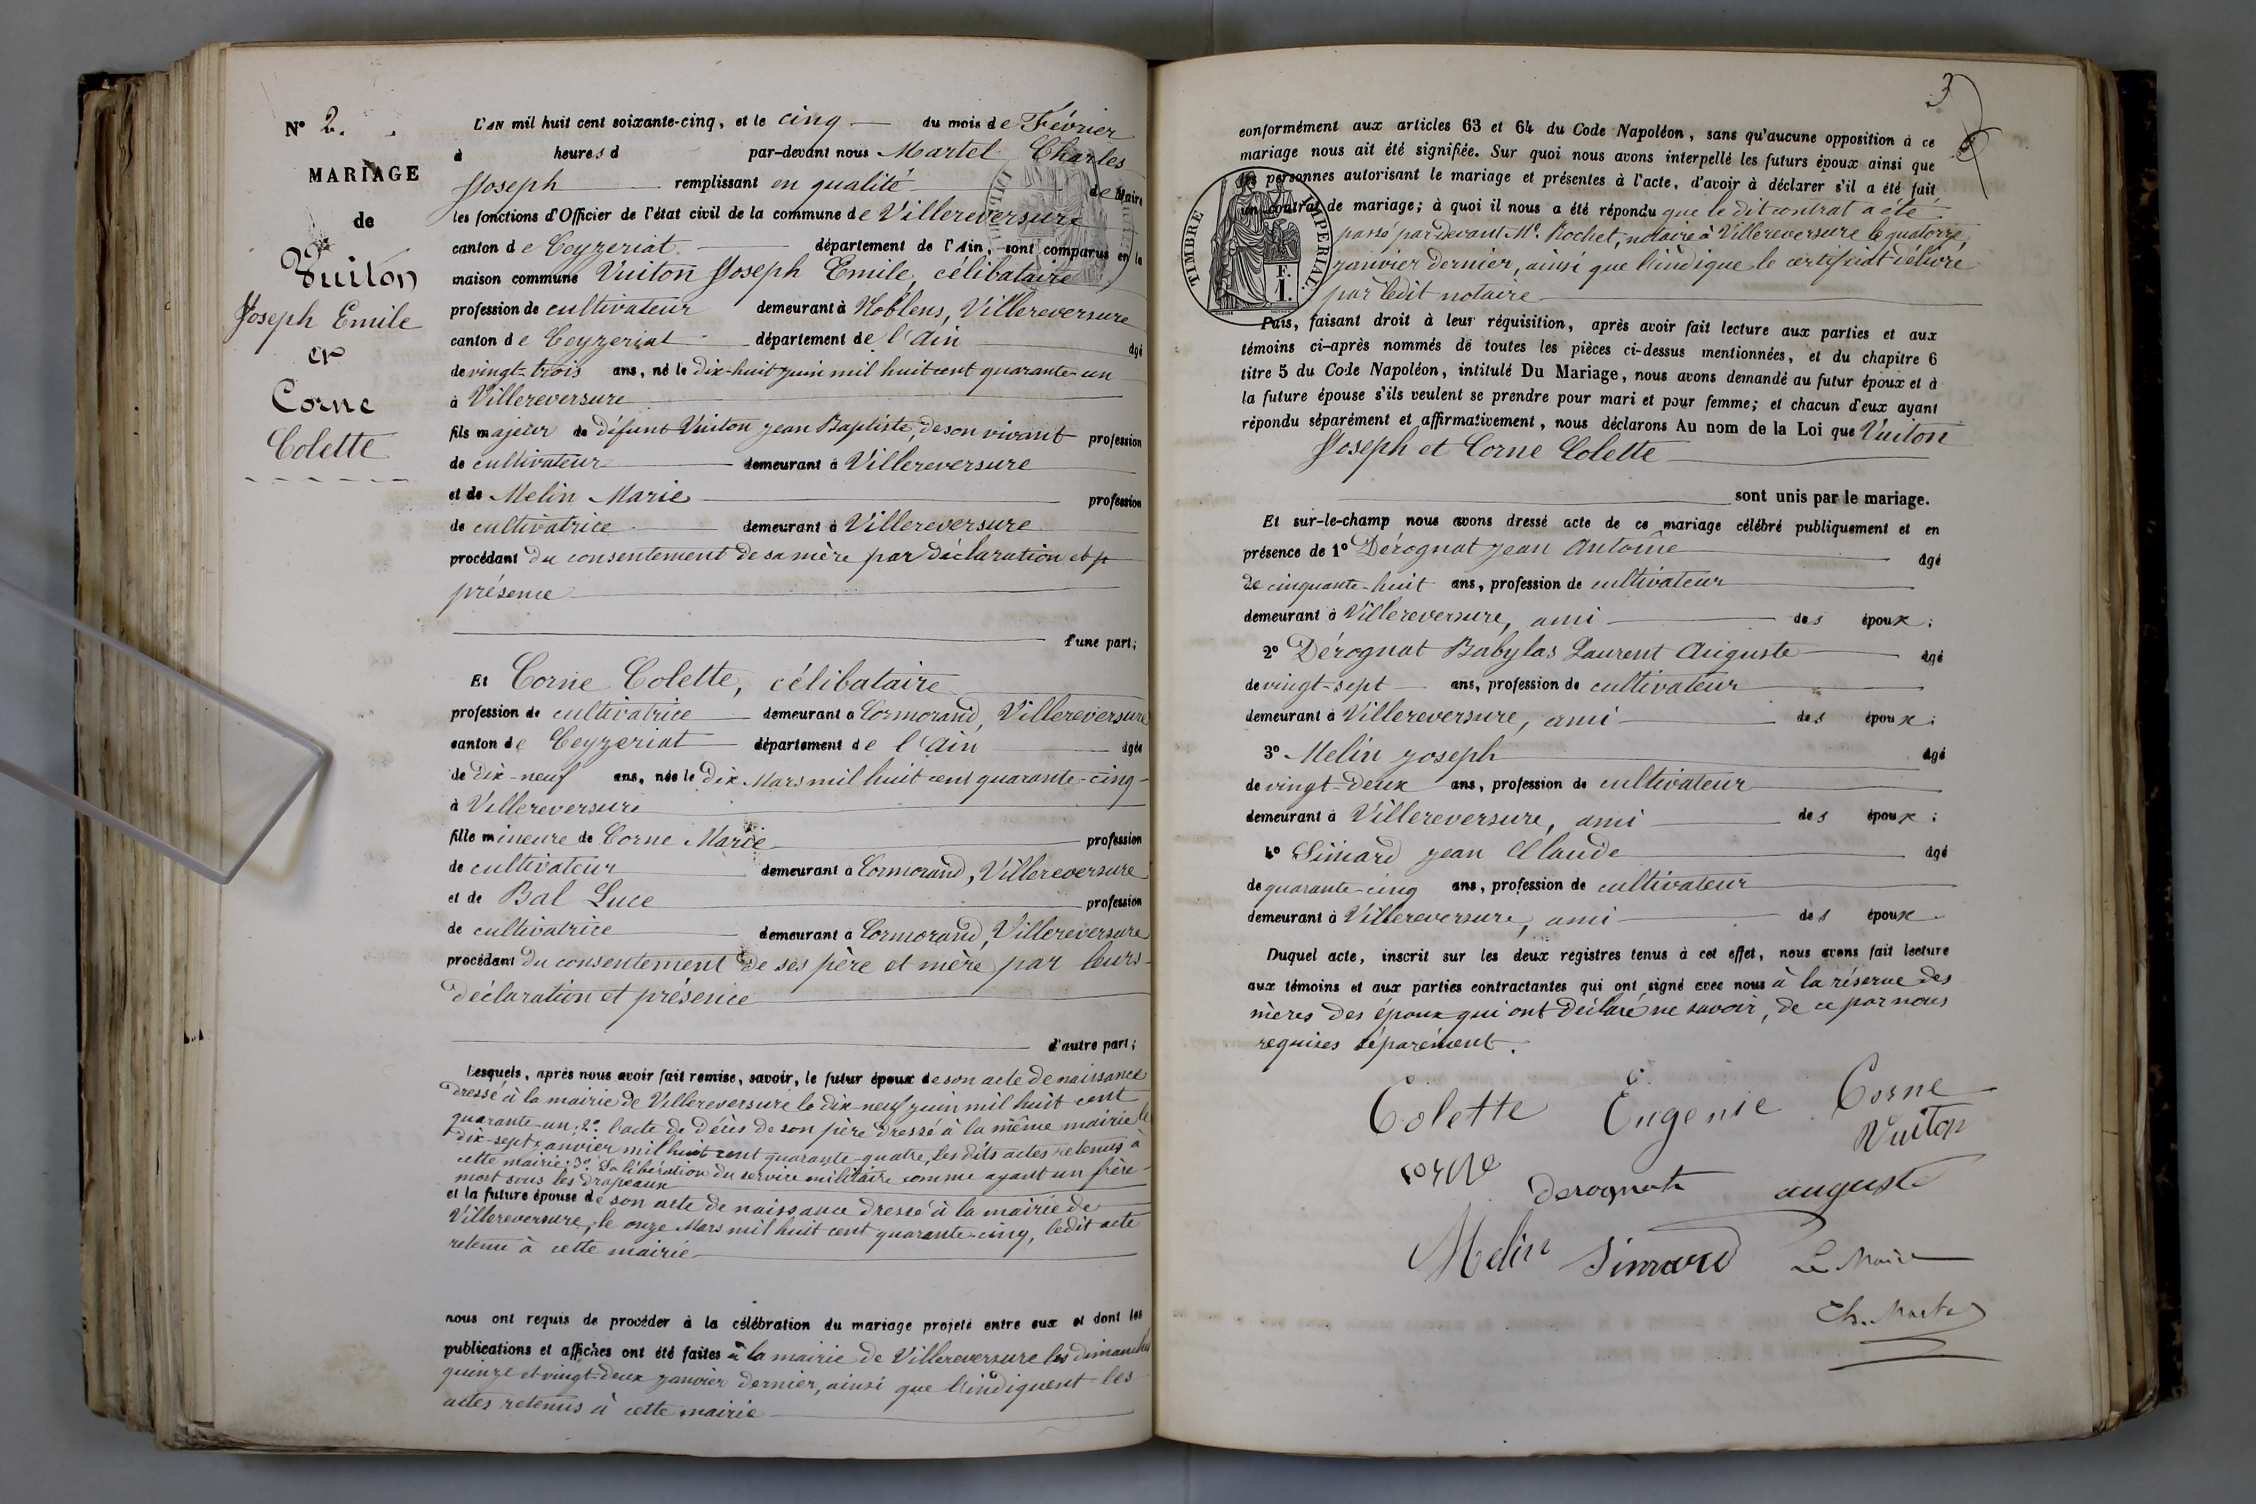 N° 2.
MARIAGE
de
Vuiton
Joseph Emile
et
Corne
Colette
L'AN mil huit cent soixante-cinq, et le cinq du mois de Février
à heures d par-devant nous Martel Charles
Joseph remplissant en qualité de Maire
les fonctions d'Officier de l'état civil de la commune de Villereversure
canton de Ceyzeriat département de l'Ain, sont comparus en la
maison commune Vuiton Joseph Emile, célibataire
profession de cultivateur demeurant à Noblens, Villereversure
canton de Ceyzeriat département de l'Ain âgé
de vingt-trois ans, né le dix-huit juin mil huit cent quarante-un
à Villereversure
fils majeur de défunt Vuiton jean Baptiste, de son vivant profession
de cultivateur demeurant à Villereversure
et de Melin Marie profession
de cultivatrice demeurant à Villereversure
procédant du consentement de sa mère par déclaration et p
présence
d'une part;
Et Corne Colette, célibataire
profession de cultivatrice demeurant à Cormorand, Villereversure
canton de Ceyzeriat département de l'Ain âgée
de dix-neuf ans, née le Dix Mars mil huit cent quarante-cinq
à Villereversure
fille mineure de Corne Marie profession
de cultivateur demeurant à Cormorand, Villereversure
et de Bal Luce profession
de cultivatrice demeurant à Cormorand, Villereversure
procédant du consentement de ses père et mère par leurs
déclaration et présence
d'autre part;
Lesquels, après nous avoir fait remise, savoir, le futur époux de son acte de naissance
dressé à la mairie de Villereversure le dix-neuf juin mil huit cent
quarante-un; 2° l'acte de décès de son père dressé à la même mairie le
dix-sept janvier mil huit cent quarante-quatre, les dits actes retenus à
cette mairie; 3° Sa libération du service militaire comme ayant un frère
mort sous les drapeaux
et la future épouse de son acte de naissance dressé à la mairie de
Villereversure, le onze Mars mil huit cent quarante-cinq, ledit acte
retenu à cette mairie
nous ont requis de procéder à la célébration du mariage projeté entre eux et dont les
publications et affiches ont été faites à la mairie de Villereversure les dimanches
quinze et vingt-deux janvier dernier, ainsi que l'indiquent les
actes retenus à cette mairie
3
conformément aux articles 63 et 64 du Code Napoléon, sans qu'aucune opposition à ce
mariage nous ait été signifiée. Sur quoi nous avons interpellé les futurs époux ainsi que
les personnes autorisant le mariage et présentes à l'acte, d'avoir à déclarer s'il a été fait
un contrat de mariage; à quoi il nous a été répondu que le dit contrat a été
passé par devant Me. Rochet, notaire à Villereversure le quatorze
janvier dernier, ainsi que l'indique le certificat délivré
par ledit notaire
TIMBRE IMPERIAL.
F.
1.
Puis, faisant droit à leur réquisition, après avoir fait lecture aux parties et aux
témoins ci-après nommés de toutes les pièces ci-dessus mentionnées, et du chapitre 6
titre 5 du Code Napoléon, intitulé Du Mariage, nous avons demandé au futur époux et à
la future épouse s'ils veulent se prendre pour mari et pour femme; et chacun d'eux ayant
répondu séparément et affirmativement, nous déclarons Au nom de la Loi que Vuiton
Joseph et Corne Colette
sont unis par le mariage.
Et sur-le-champ nous avons dressé acte de ce mariage célébré publiquement et en
présence de 1° Dérognat jean Antoine âgé
de cinquante-huit ans, profession de cultivateur
demeurant à Villereversure, ami des époux;
2° Dérognat Babylas Laurent Auguste âgé
de vingt-sept ans, profession de cultivateur
demeurant à Villereversure, ami des époux;
3° Melin joseph âgé
de vingt-deux ans, profession de cultivateur
demeurant à Villereversure, ami des époux;
4° Simard jean Claude âgé
de quarante-cinq ans, profession de cultivateur
demeurant à Villereversure, ami des époux
Duquel acte, inscrit sur les deux registres tenus à cet effet, nous avons fait lecture
aux témoins et aux parties contractantes qui ont signé avec nous à la réserve des
mères des époux qui ont déclaré ne savoir, de ce par nous
requises séparément.
Colette Eugenie Corne
Vuiton
corne
derognat auguste
Melin Simard Le Maire
Ch. Martel